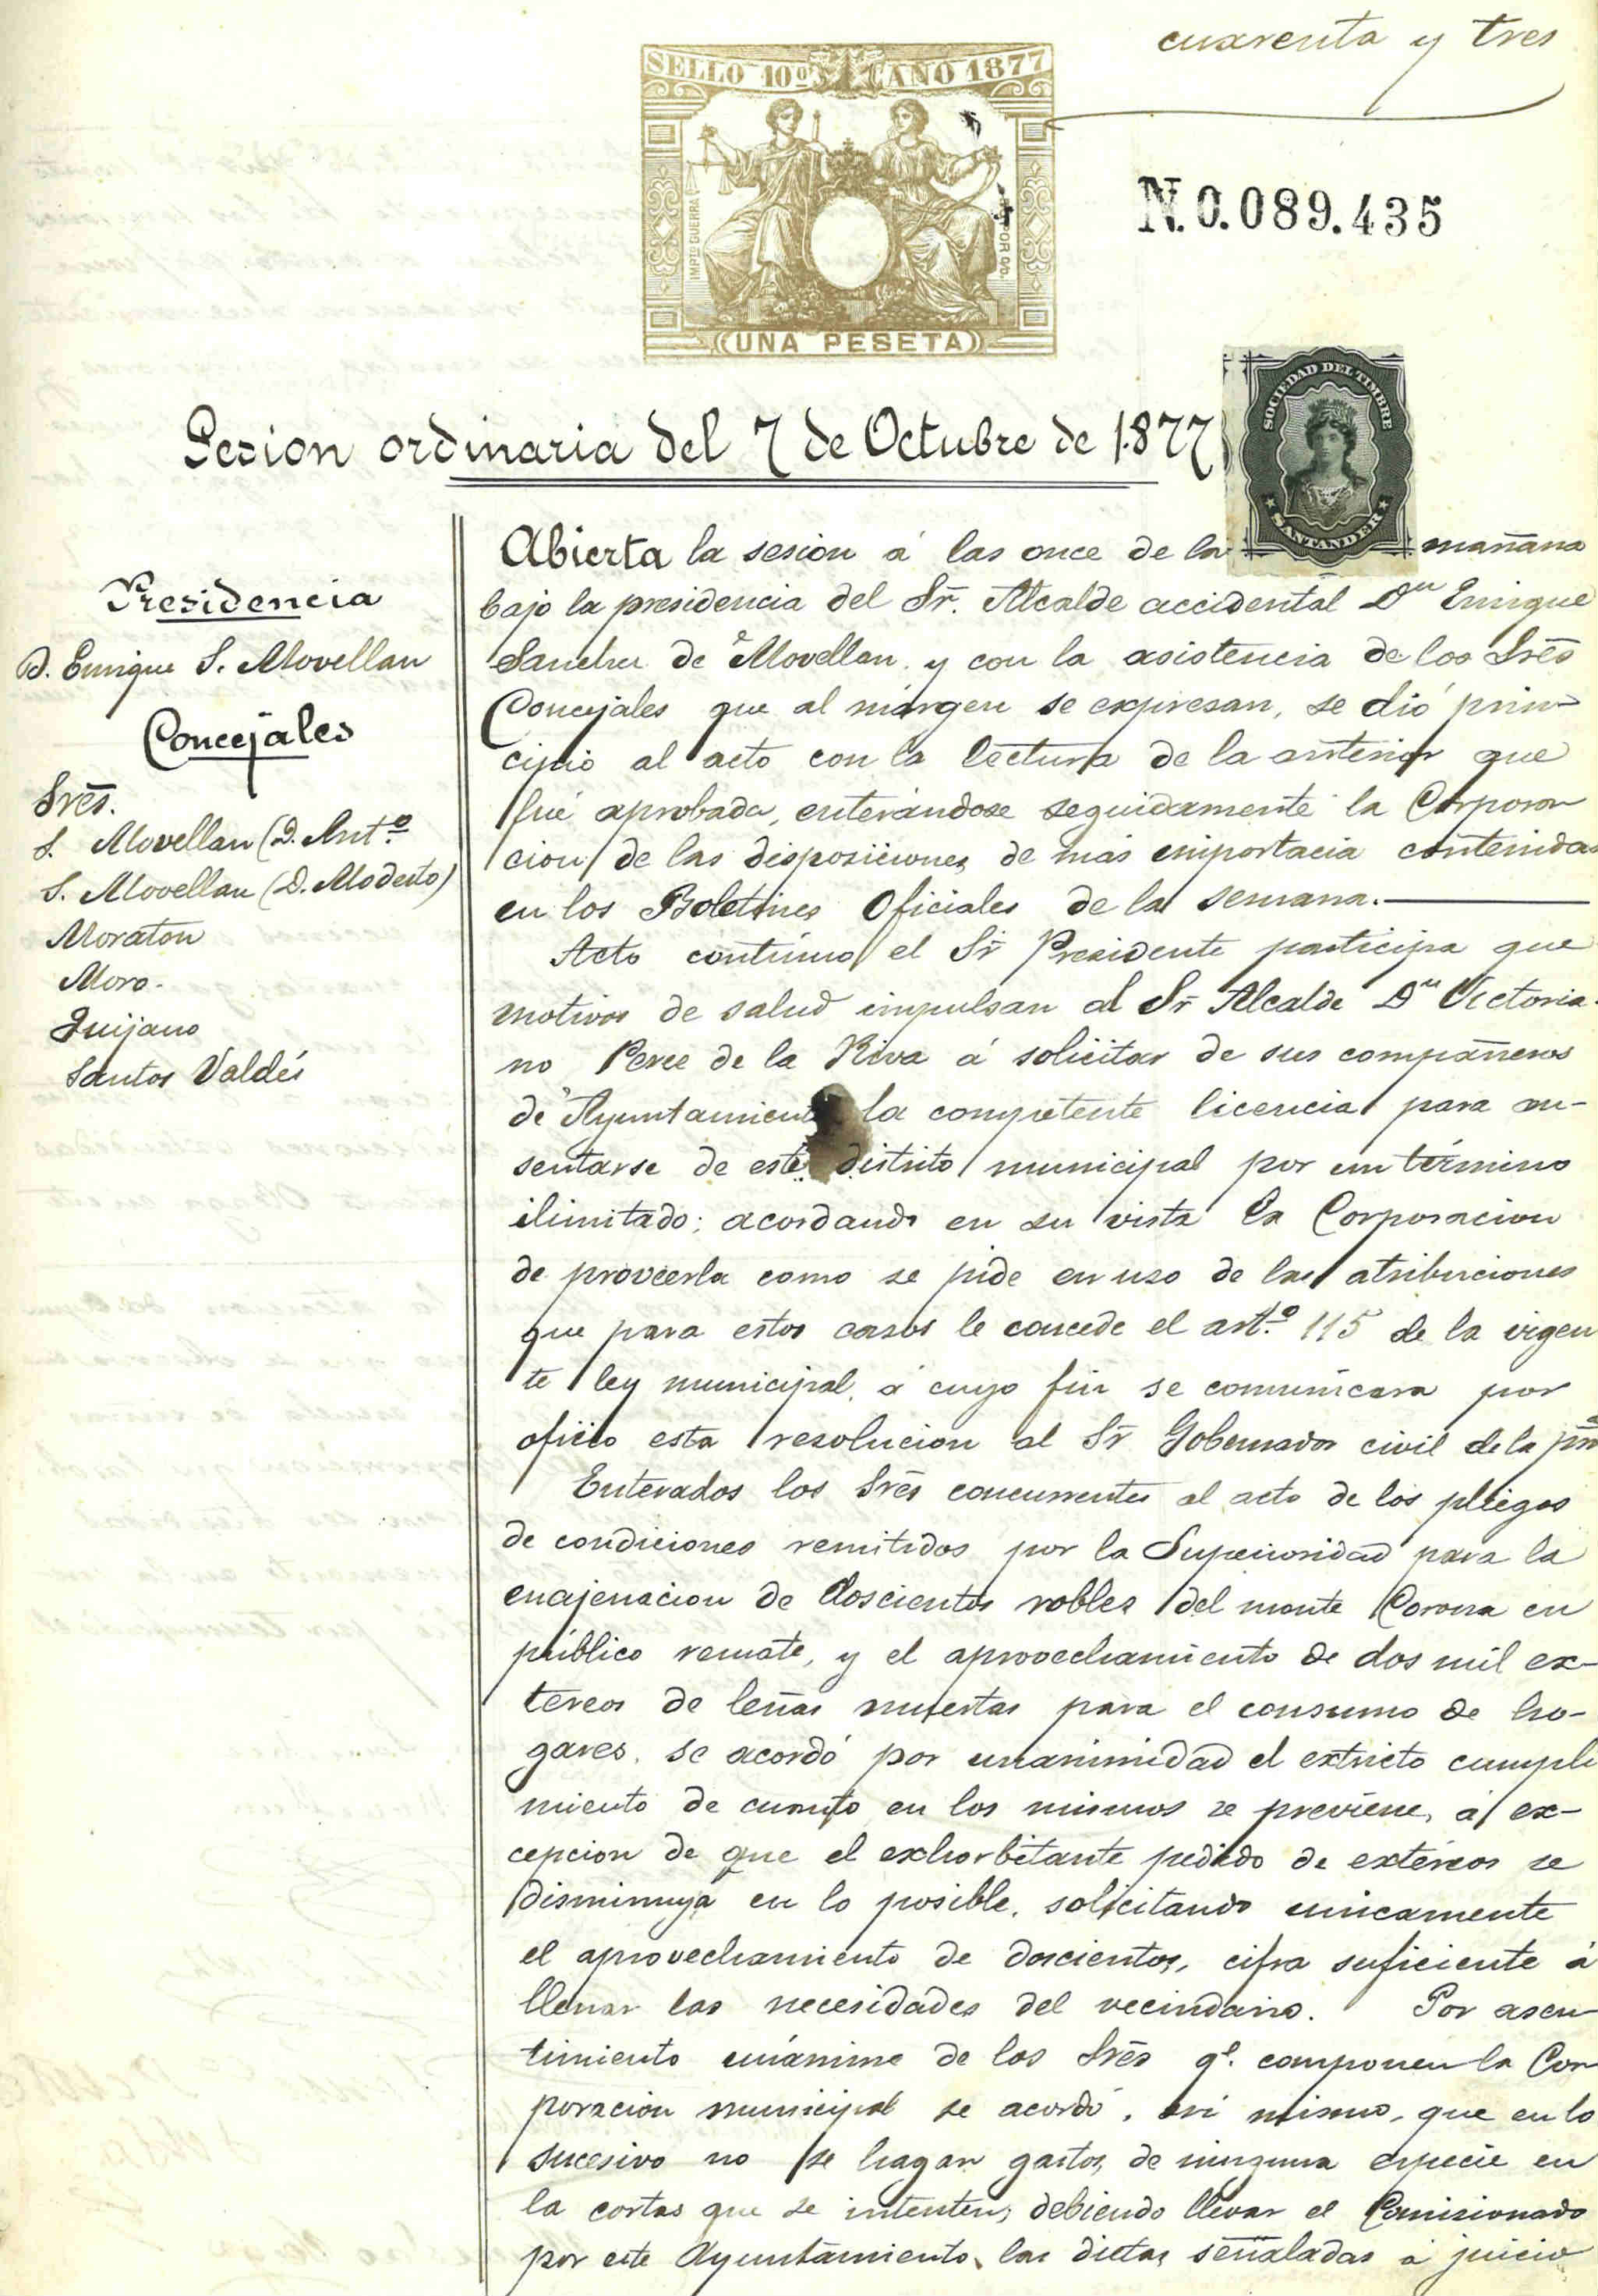 cuarenta y tres
SELLO 10º AÑO 1877
N.0.089.435
UNA PESETA
SOCIEDAD DEL TIMBRE
SANTANDER
Sesion ordinaria del 7 de Octubre de 1877
Presidencia
D. Enrique S. Movellan
Concejales
Srēs.
S. Movellan (D. Antº
S. Movellan (D. Modesto)
Moraton
Moro.
Quijano
Santos Valdés
Abierta la sesion á las once de la mañana
bajo la presidencia del Sr. Alcalde accidental Dn Enrique
Sanchez de Movellan y con la asistencia de los Srēs
Concejales que al márgen se expresan, se dió prin-
cipio al acto con la lectura de la anterior que
fué aprobada, enterándose seguidamente la Corpora
cion de las disposiciones de más importacia contenidas
en los Boletines Oficiales de la semana.
Acto contínuo el Sr Presidente participa que
motivos de salud impulsan al Sr Alcalde Dn Victoria-
no Perez de la Riva á solicitar de sus compañeros
de Ayuntamiento la competente licencia para au-
sentarse de este distrito municipal por un término
ilimitado; acordando en su vista la Corporacion
de proveerla como se pide en uso de las atribuciones
que para estos casos le concede el artº 115 de la vigen
te ley municipal, á cuyo fin se comunicara por
oficio esta resolucion al Sr Gobernador civil de la pnª
Enterados los Srēs concurrentes al acto de los pliegos
de condiciones remitidos por la Superioridad para la
enajenacion de doscientos robles del monte Corona en
público remate, y el aprovechamiento de dos mil ex-
tereos de leñas muertas para el consumo de ho-
gares, se acordó por unanimidad el extricto cumpli
miento de cuanto en los mismos se previene, á ex-
cepcion de que el exhorbitante pedido de extéreos se
disminuya en lo posible, solicitando unicamente
el aprovechamiento de doscientos, cifra suficiente á
llenar las necesidades del vecindario. Por asen
timiento unánime de los Srēs qe. componen la Cor
poracion municipal se acordó, asi mismo, que en lo
sucesivo no se hagan gastos de ninguna especie en
la cortas que se intenten, debiendo llevar el Comisionado
por este Ayuntamiento, las dietas señaladas á juicio